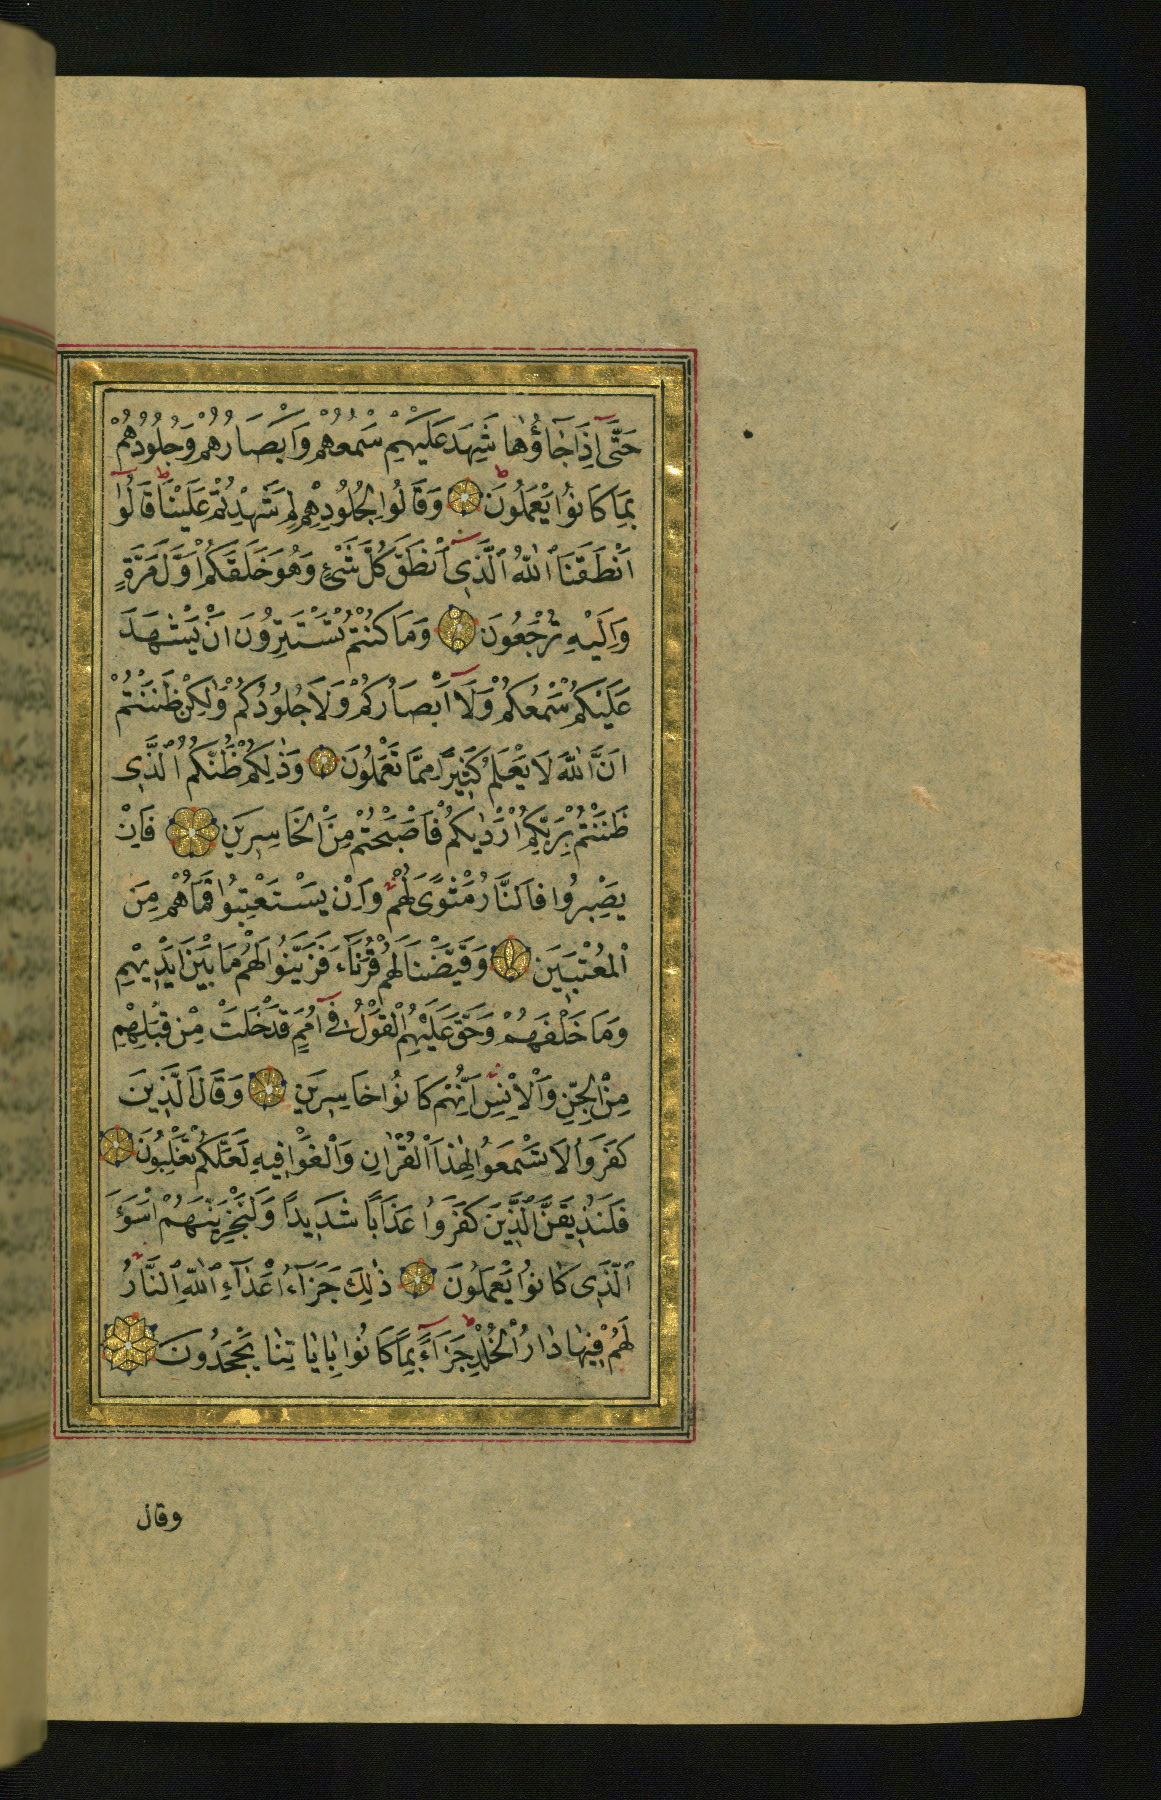 حَتَّى اِذَا جَاؤُهَا شَهِدَ عَلَيْهِمْ سَمْعُهُمْ وَاَبْصَارُهُمْ وَجُلُودُهُمْ
بِمَا كَانُوا يَعْمَلُونَ وَقَالُوا لِجُلُودِهِمْ لِمَ شَهِدْتُمْ عَلَيْنَا قَالُوا
اَنْطَقَنَا اللّٰهُ الَّذِى اَنْطَقَ كُلَّ شَىْءٍ وَهُوَ خَلَقَكُمْ اَوَّلَ مَرَّةٍ
وَاِلَيْهِ تُرْجَعُونَ وَمَا كُنْتُمْ تَسْتَتِرُونَ اَنْ يَشْهَدَ
عَلَيْكُمْ سَمْعُكُمْ وَلَا اَبْصَارُكُمْ وَلَا جُلُودُكُمْ وَلٰكِنْ ظَنَنْتُمْ
اَنَّ اللّٰهَ لَا يَعْلَمُ كَثِيرًا مِمَّا تَعْمَلُونَ وَذٰلِكُمْ ظَنُّكُمُ الَّذِى
ظَنَنْتُمْ بِرَبِّكُمْ اَرْدٰيكُمْ فَاَصْبَحْتُمْ مِنَ الْخَاسِرِينَ فَاِنْ
يَصْبِرُوا فَالنَّارُ مَثْوًى لَهُمْ وَاِنْ يَسْتَعْتِبُوا فَمَا هُمْ مِنَ
الْمُعْتَبِينَ وَقَيَّضْنَا لَهُمْ قُرَنَاءَ فَزَيَّنُوا لَهُمْ مَا بَيْنَ اَيْدِيهِمْ
وَمَا خَلْفَهُمْ وَحَقَّ عَلَيْهِمُ الْقَوْلُ فِى اُمَمٍ قَدْ خَلَتْ مِنْ قَبْلِهِمْ
مِنَ الْجِنِّ وَالْاِنْسِ اِنَّهُمْ كَانُوا خَاسِرِينَ وَقَالَ الَّذِينَ
كَفَرُوا لَا تَسْمَعُوا لِهٰذَا الْقُرْاٰنِ وَالْغَوْا فِيهِ لَعَلَّكُمْ تَغْلِبُونَ
فَلَنُذِيقَنَّ الَّذِينَ كَفَرُوا عَذَابًا شَدِيدًا وَلَنَجْزِيَنَّهُمْ اَسْوَءَ
الَّذِى كَانُوا يَعْمَلُونَ ذٰلِكَ جَزَاءُ اَعْدَاءِ اللّٰهِ النَّارُ
لَهُمْ فِيهَا دَارُ الْخُلْدِ جَزَاءً بِمَا كَانُوا بِاٰيَاتِنَا يَجْحَدُونَ
وقال